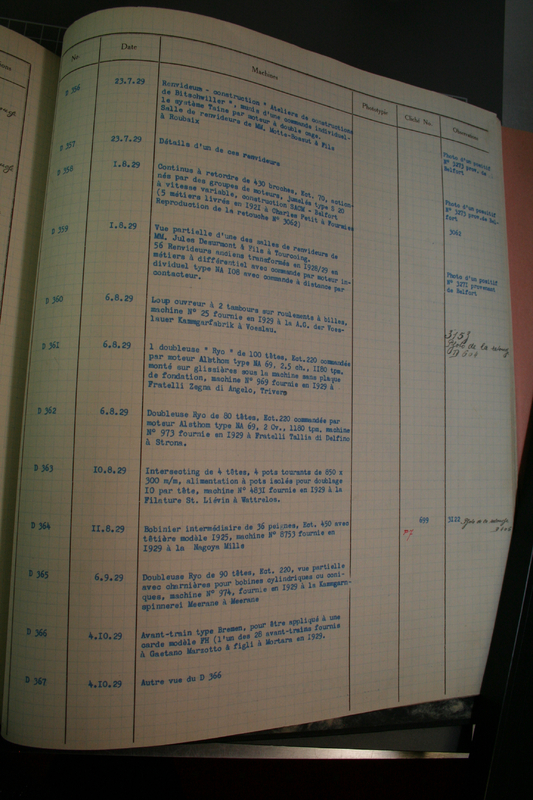 N°
Date
Machines
Phototypie
Cliché No.
Observations
D 356
23.7.29
Renvideurs - construction " Ateliers de constructions
de Bitschwiller ", munis d'une commande individuel-
le système Teine par moteur à double cage.
Halle de renvideurs de MM. Motte-Bossut & Fils
à Roubaix
Photo d'un positif
N° 3273 prov. de
Belfort
D 357
23.7.29
Détails d'un de ces renvideurs
D 358
1.8.29
Continus à retordre de 430 broches, Ect. 75, action-
nés par des groupes de moteurs, jumelés type S 20
à vitesse variable, construction SACM - Belfort
(5 métiers livrés en 1921 à Charles Petit à Fourmies
Reproduction de la retouche N° 3062)
Photo d'un positif
N° 3273 prov. de Bel-
fort
3062
D 359
1.8.29
Vue partielle d'une des salles de renvideurs de
MM. Jules Desurmont & Fils à Tourcoing.
56 Renvideurs anciens transformés en 1928/29 en
métiers à différentiel avec commande par moteur in-
dividuel type NA 108 avec commande à distance par
contacteur.
Photo d'un positif
N° 3271 provenant
de Belfort
D 360
6.8.29
Loup ouvreur à 2 tambours sur roulements à billes,
machine N° 25 fournie en 1929 à la A.G. der Voes-
lauer Kammgarfabrik à Voeslau.
D 361
6.8.29
1 doubleuse " Ryo " de 100 têtes, Ect.220 commandée
par moteur Alsthom type NA 69, 2,5 ch., 1180 tpm.
monté sur glissières sous la machine sans plaque
de fondation, machine N° 969 fournie en 1929 à
Fratelli Zegna di Angelo, Trivero
D 362
6.8.29
Doubleuse Ryo de 80 têtes, Ect.220 commandés par
moteur Alsthom type NA 69, 2 Cv., 1180 tpm. machine
N° 973 fournie en 1929 à Fratelli Tallia di Delfino
à Strona.
D 363
10.8.29
Intersecting de 4 têtes, 4 pots tournants de 650 x
300 m/m, alimentation à pots isolés pour doublage
10 par tête, machine N° 4831 fournie en 1929 à la
Filature St. Liévin à Wattrelos.
D 364
11.8.29
Bobinier intermédiaire de 36 peignes, Ect. 450 avec
têtière modèle 1925, machine N° 8753 fournie en
1929 à la Nagoya Mills
699
D 365
6.9.29
Doubleuse Ryo de 90 têtes, Ect. 220, vue partielle
avec charnières pour bobines cylindriques ou coni-
ques, machine N° 974, fournie en 1929 à la Kammgarn-
spinnerei Meerane à Meerane
D 366
4.10.29
Avant-train type Bremen, pour être appliqué à une
carde modèle FH (l'un des 28 avant-trains fournis
à Gaetano Marzotto & figli à Mortara en 1929.
D 367
4.10.29
Autre vue du D 366